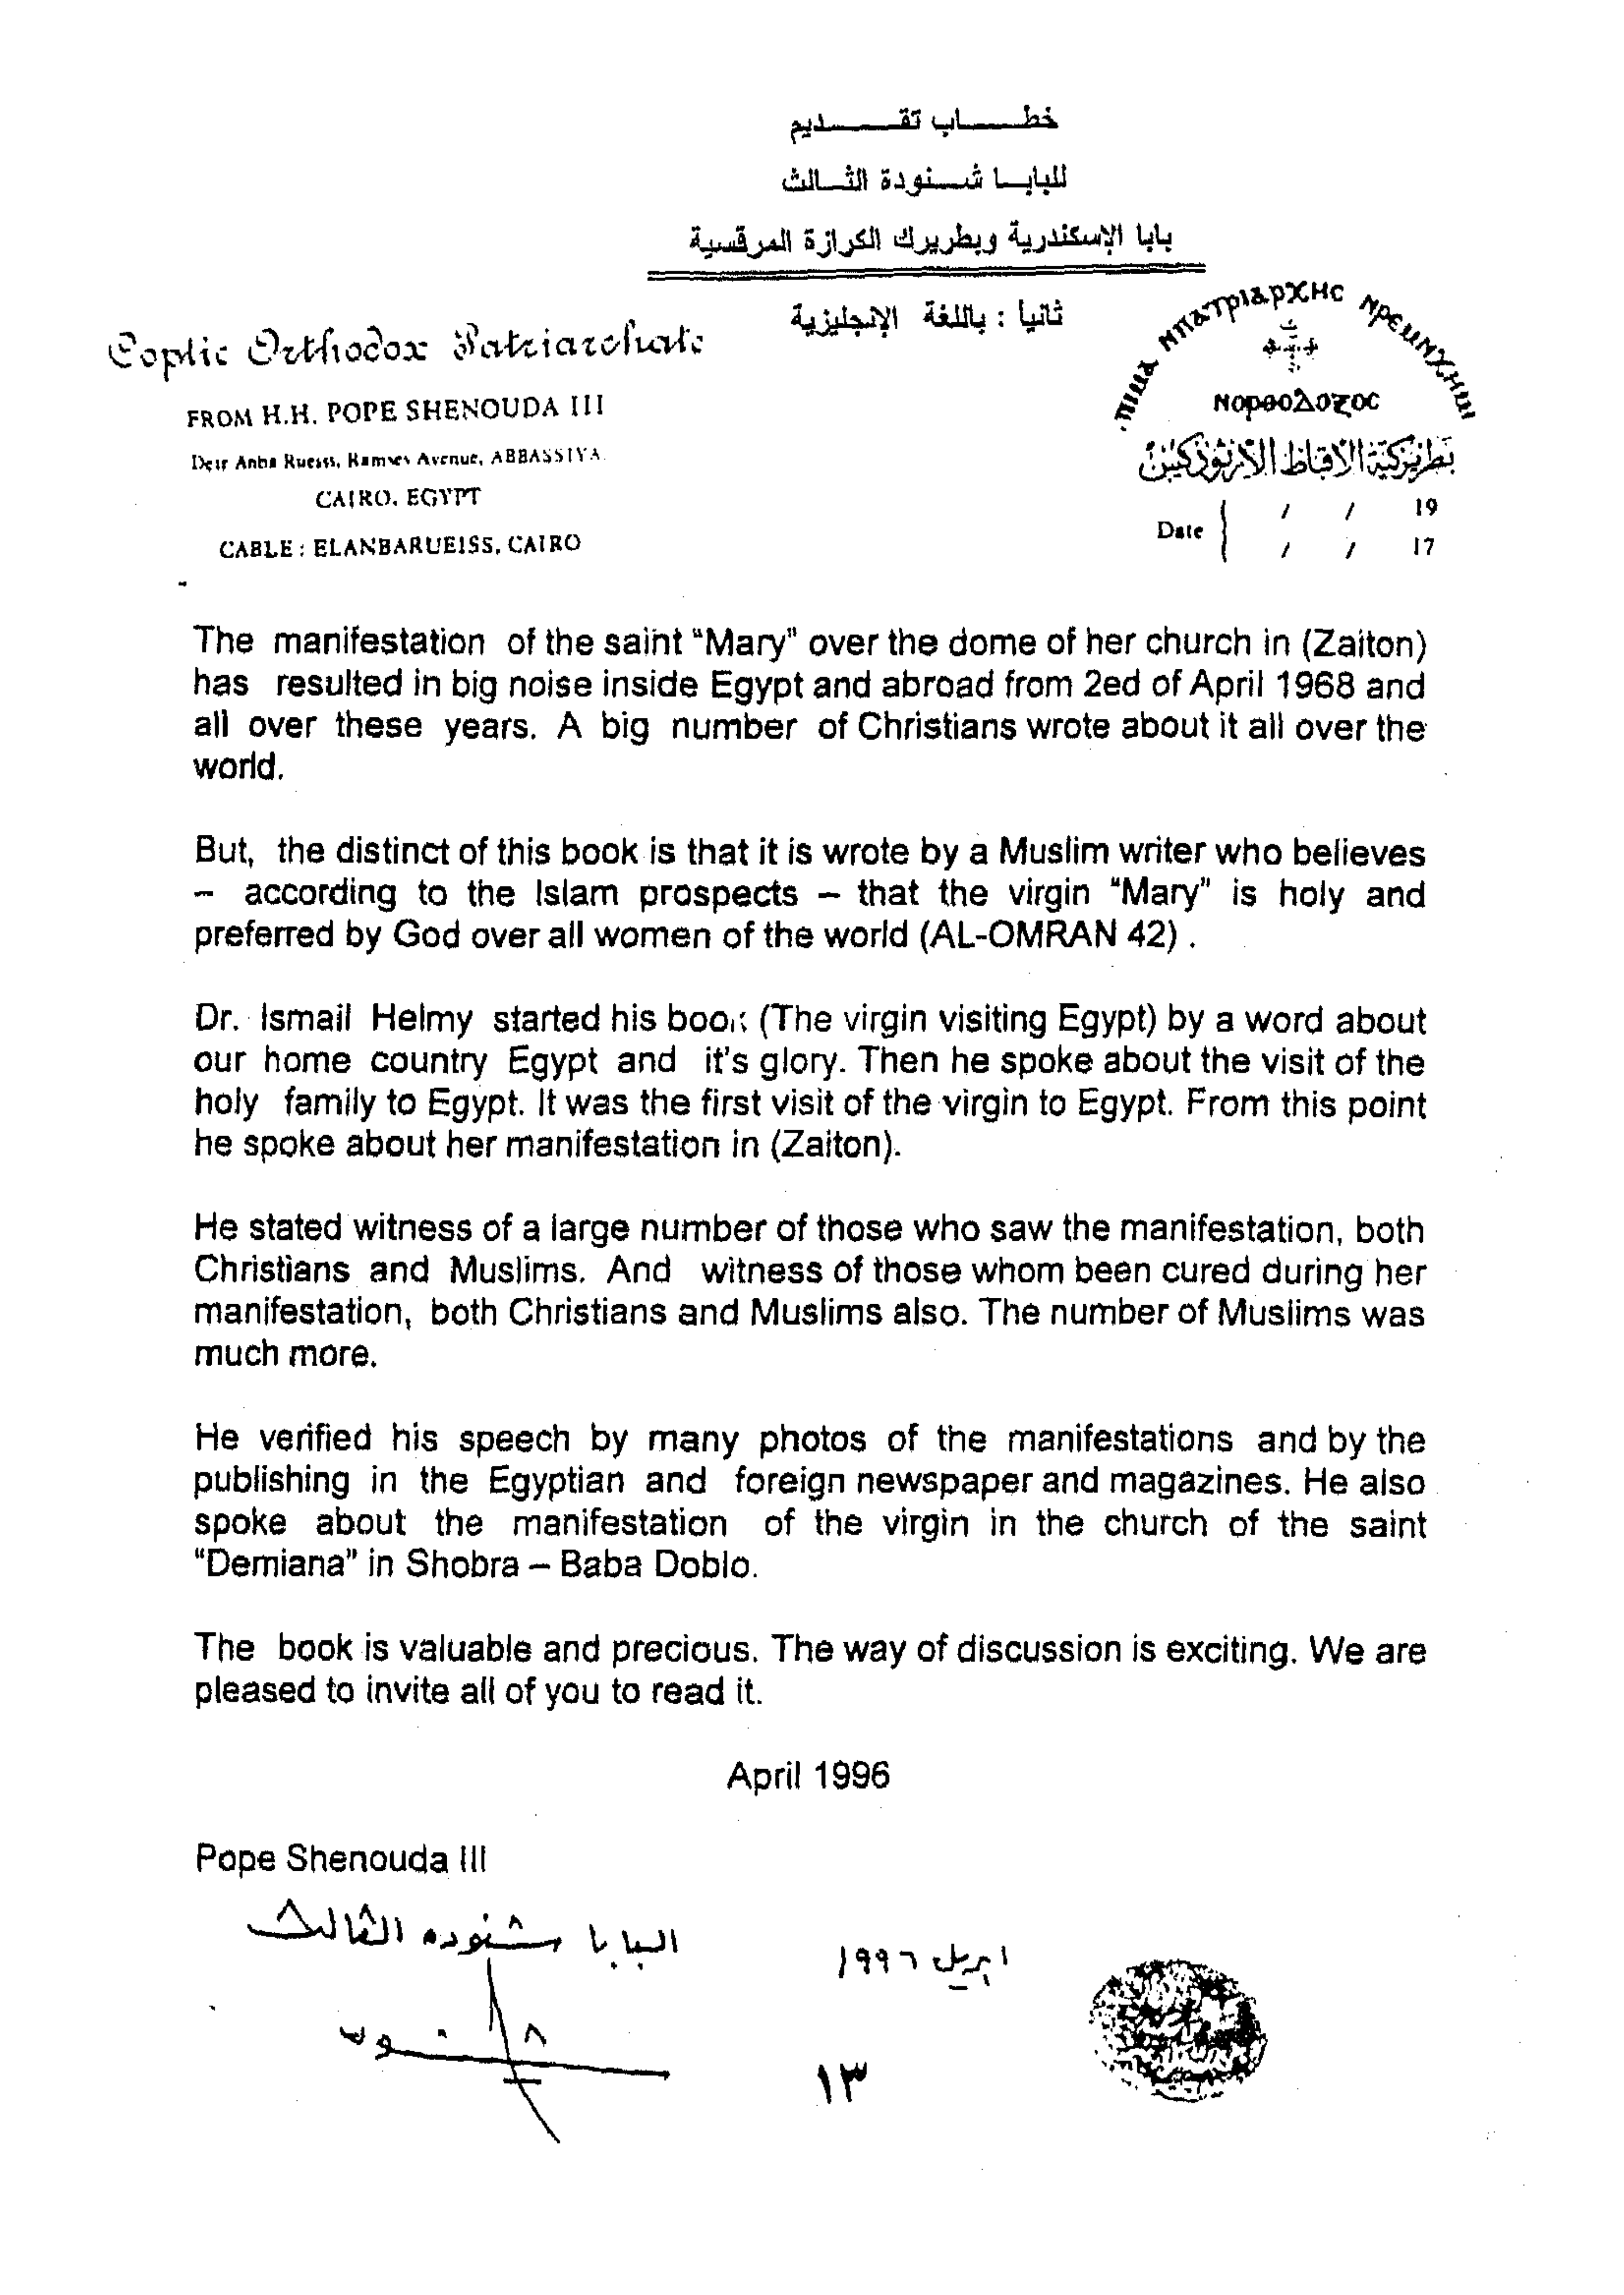 خطاب تقديم
للبابا شنودة الثالث
بابا الإسكندرية وبطريرك الكرازة المرقسية
ثانيا : باللغة الإنجليزية
Coptic Orthodox Patriarchate
FROM H.H. POPE SHENOUDA III
Deir Anba Rueiss, Ramses Avenue, ABBASSIYA.
CAIRO, EGYPT
CABLE : ELANBARUEISS, CAIRO
ⲚⲞⲢⲐⲞⲆⲞⲜⲞⲤ
بطريركية الاقباط الارثوذكس
Date / / 19
/ / 17
The manifestation of the saint “Mary” over the dome of her church in (Zaiton)
has resulted in big noise inside Egypt and abroad from 2ed of April 1968 and
all over these years. A big number of Christians wrote about it all over the
world.
But, the distinct of this book is that it is wrote by a Muslim writer who believes
– according to the Islam prospects – that the virgin “Mary” is holy and
preferred by God over all women of the world (AL-OMRAN 42) .
Dr. Ismail Helmy started his book (The virgin visiting Egypt) by a word about
our home country Egypt and it's glory. Then he spoke about the visit of the
holy family to Egypt. It was the first visit of the virgin to Egypt. From this point
he spoke about her manifestation in (Zaiton).
He stated witness of a large number of those who saw the manifestation, both
Christians and Muslims. And witness of those whom been cured during her
manifestation, both Christians and Muslims also. The number of Muslims was
much more.
He verified his speech by many photos of the manifestations and by the
publishing in the Egyptian and foreign newspaper and magazines. He also
spoke about the manifestation of the virgin in the church of the saint
“Demiana” in Shobra – Baba Doblo.
The book is valuable and precious. The way of discussion is exciting. We are
pleased to invite all of you to read it.
April 1996
Pope Shenouda III
البابا شنوده الثالث
ابريل ١٩٩٦
١٣